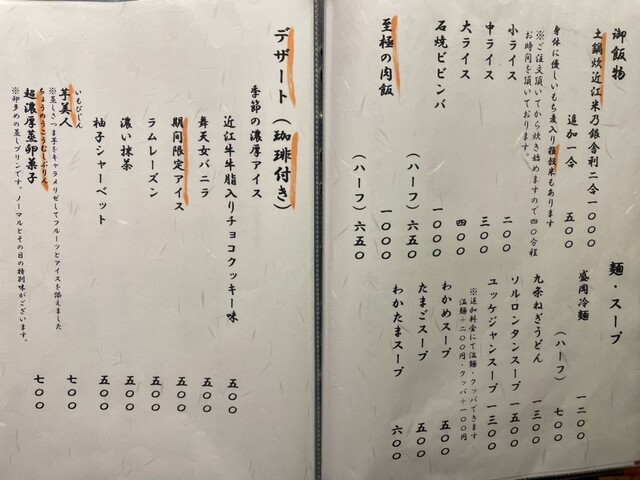 御飯物
土鍋炊近江米乃銀舎利二合 一〇〇〇
追加一合 五〇〇
身体に優しいもち麦入り雑穀米もあります
※ご注文頂いてから炊き始めますので四〇分程
お時間を頂いております。
小ライス 二〇〇
中ライス 三〇〇
大ライス 四〇〇
石焼ビビンバ 一〇〇〇
(ハーフ) 六五〇
至極の肉飯 一〇〇〇
(ハーフ) 六五〇
麺・スープ
盛岡冷麺 一二〇〇
(ハーフ) 七〇〇
九条ねぎうどん 一三〇〇
ソルロンタンスープ 一五〇〇
ユッケジャンスープ 一三〇〇
※追加料金にて温麺・クッパできます
温麺+二〇〇円・クッパ+一〇〇円
わかめスープ 五〇〇
たまごスープ 五〇〇
わかたまスープ 六〇〇
デザート(珈琲付き)
季節の濃厚アイス
近江牛牛脂入りチョコクッキー味 五〇〇
舞天女バニラ 五〇〇
期間限定アイス 五〇〇
ラムレーズン 五〇〇
濃い抹茶 五〇〇
柚子シャーベット 五〇〇
いもびじん
芋美人 七〇〇
※蒸しさつま芋をキャラメリゼしてフルーツとアイスを添えました
ちょうのうこうむしぷりん
超濃厚蒸卵菓子 七〇〇
※卵多めの蒸しプリンです。ノーマルとその日の特別味がございます。